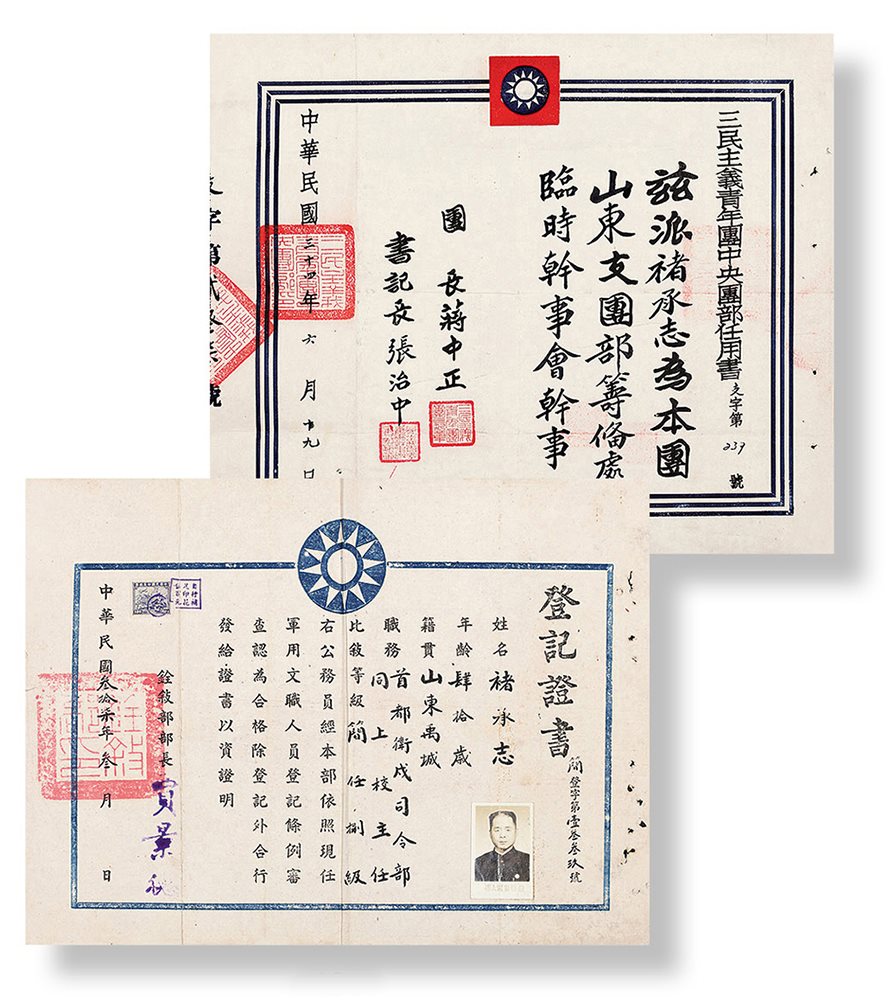 三民主義青年團中央團部任用書 支字第239號
茲派褚承志為本團
山東支團部籌備處
臨時幹事會幹事
團長蔣中正
書記長張治中
中華民國三十四年六月十九日
登記證書
簡登字第壹叁叁玖號
姓名 褚承志
年齡 肆拾歲
籍貫 山東禹城
職務 首都衛戍司令部
同上校主任
比敘等級 簡任捌級
右公務員經本部依照現任
軍用文職人員登記條例審
查認為合格除登記外合行
發給證書以資證明
銓敘部部長
中華民國叁拾柒年叁月 日